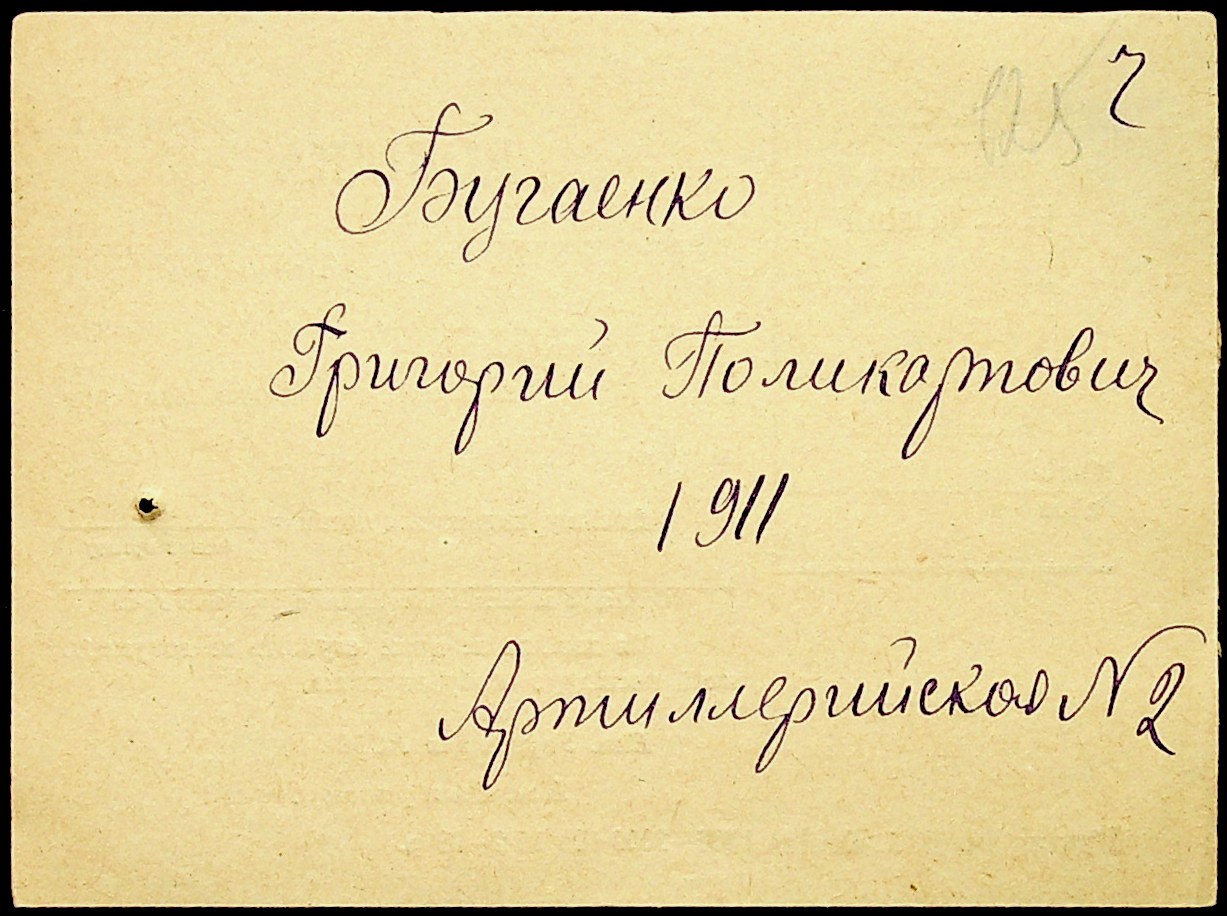 125 ч
Бугаенко
Григорий Поликартович
1911
Артиллерийская N 2